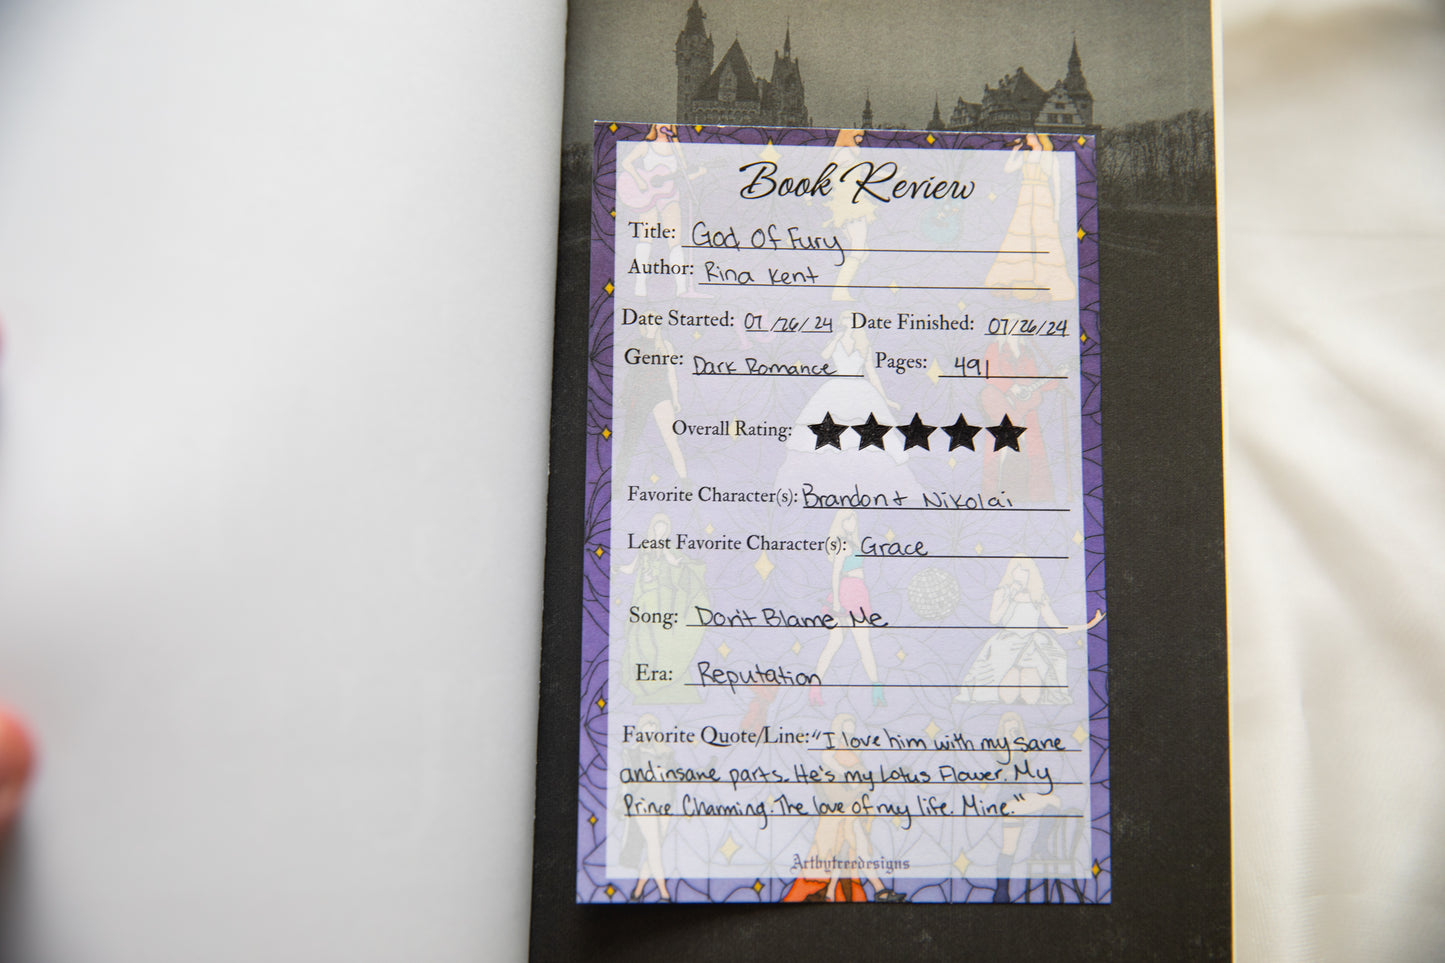 Book Review
Title: God Of Fury
Author: Rina Kent
Date Started: 07/26/24 Date Finished: 07/26/24
Genre: Dark Romance Pages: 491
Overall Rating: ★★★★★
Favorite Character(s): Brandon + Nikolai
Least Favorite Character(s): Grace
Song: Don't Blame Me
Era: Reputation
Favorite Quote/Line: "I love him with my sane
and insane parts. He's my Lotus Flower. My
Prince Charming. The love of my life. Mine."
Artbytreedesigns